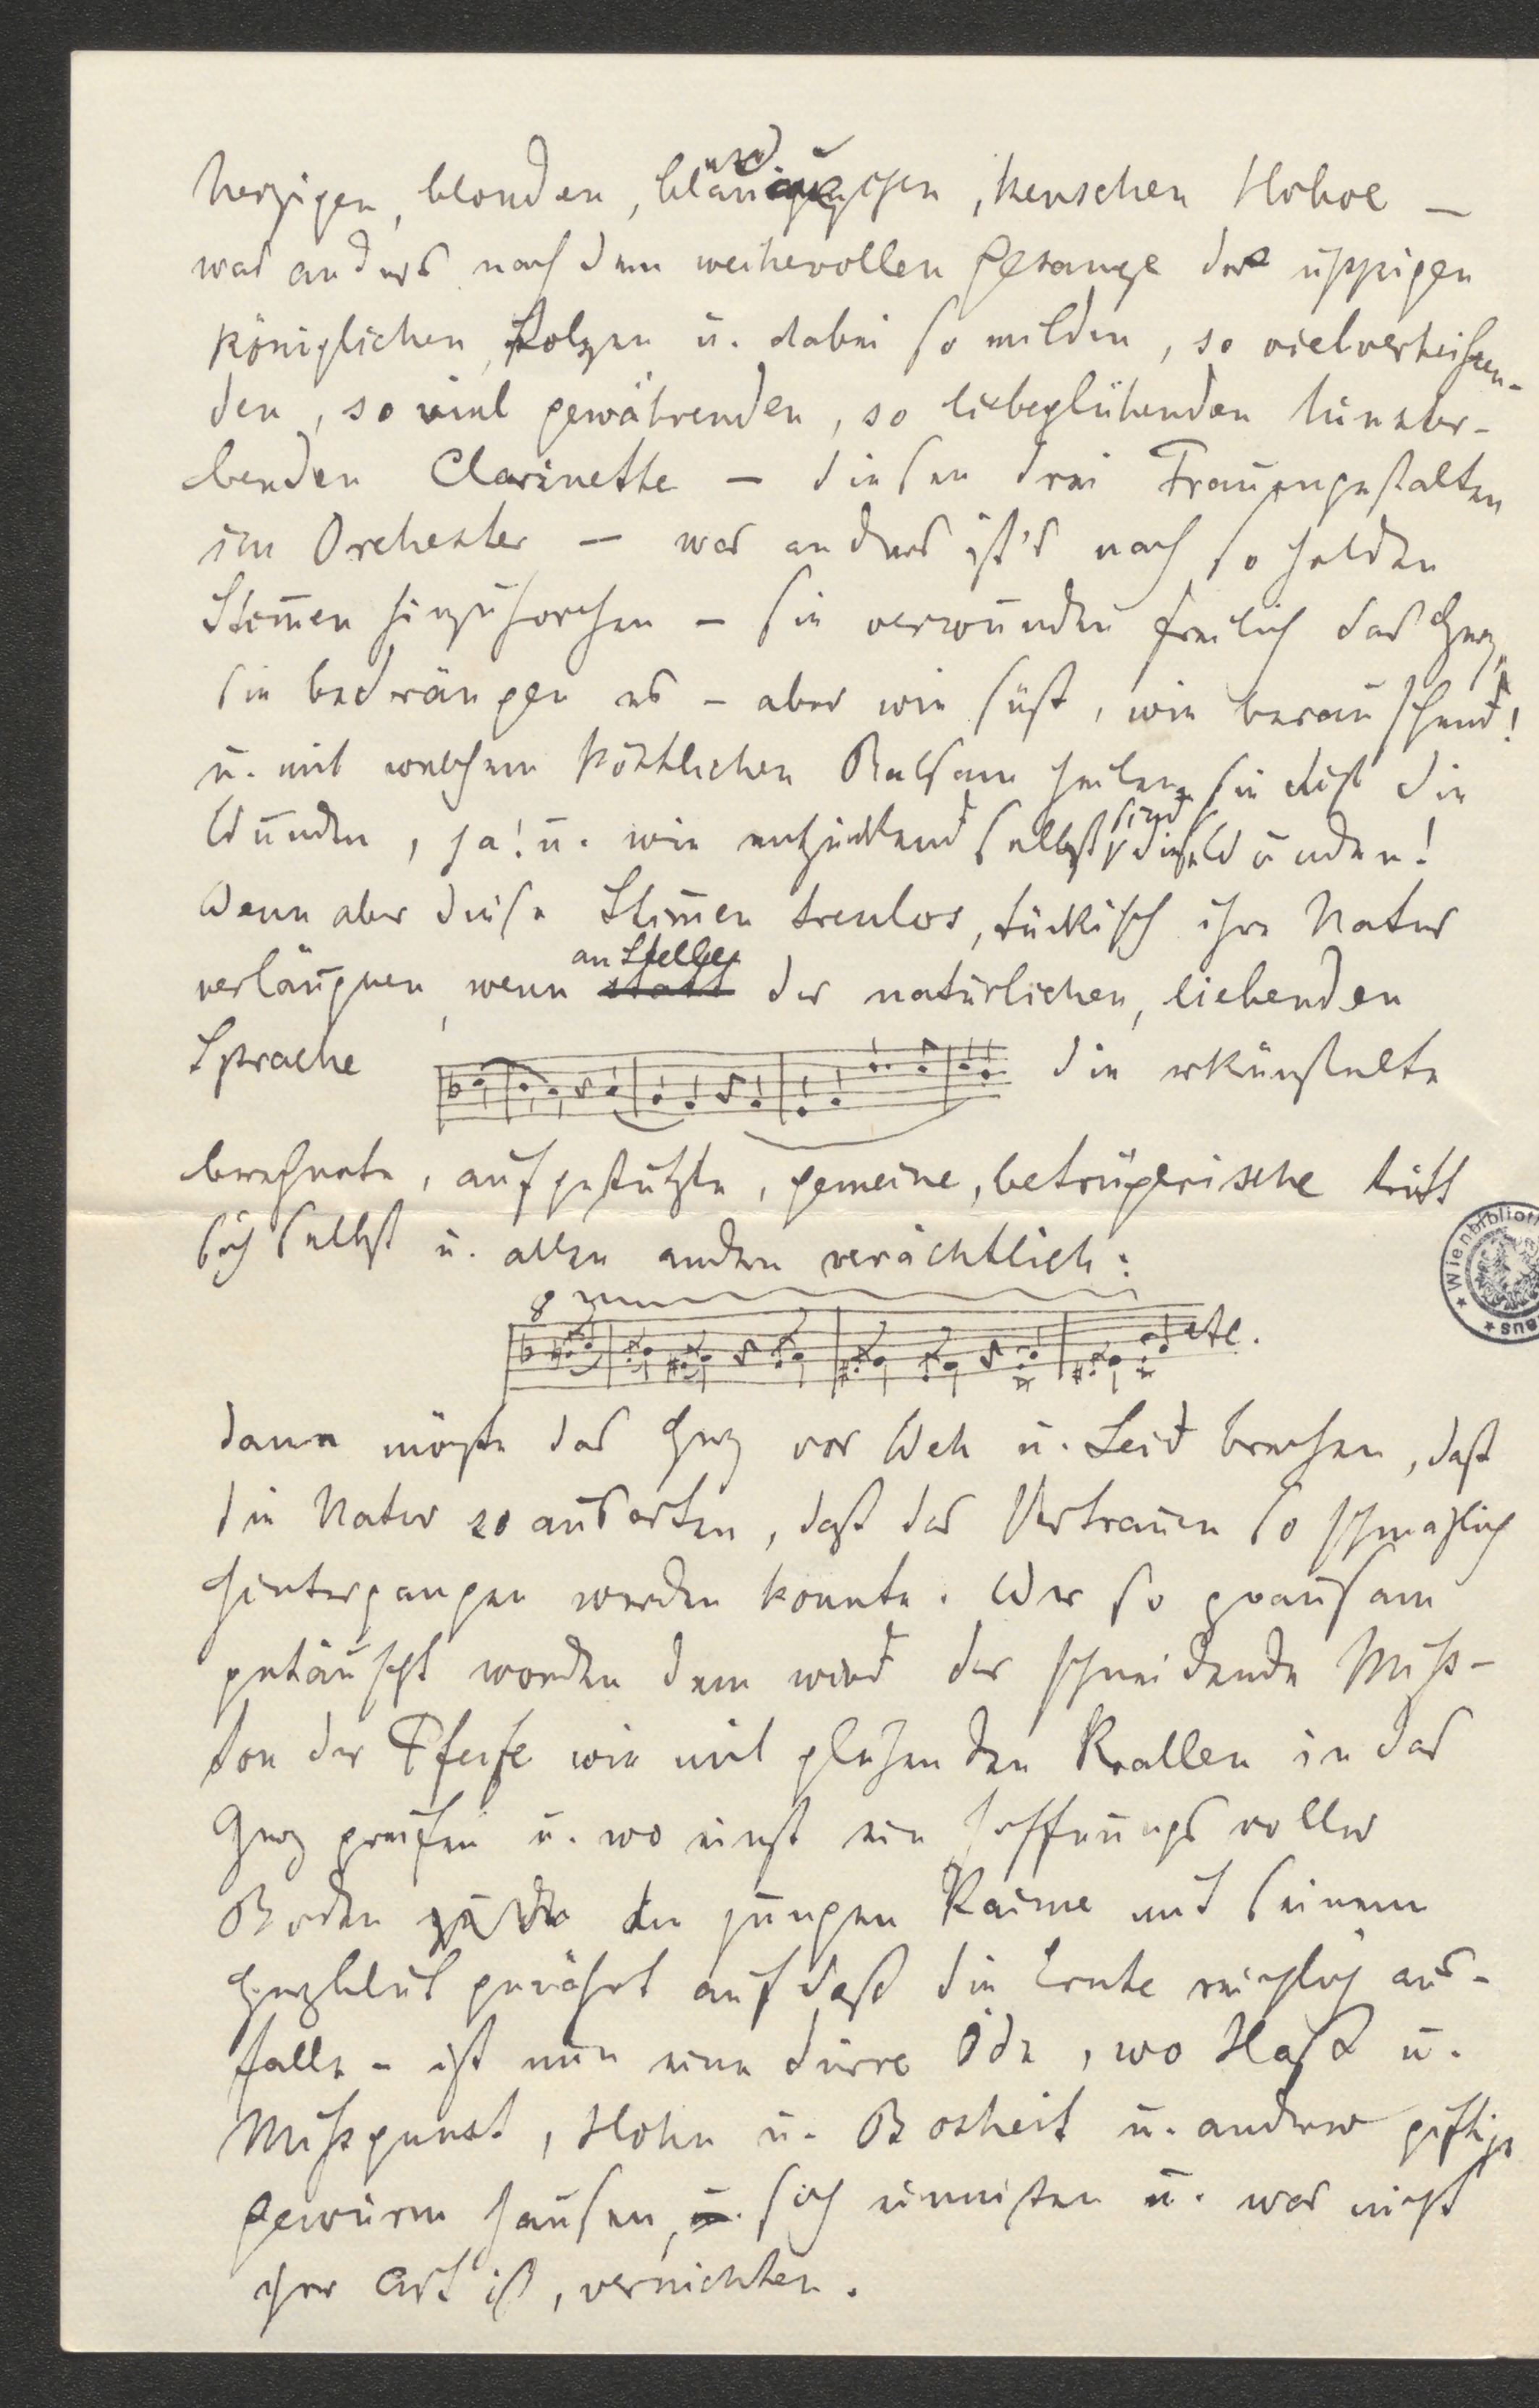 herzigen, blonden, blauäugigen, keuschen Hoboe —
was anders nach dem weihevollen Gesange der üppigen
königlichen, stolzen u. dabei so milden, so vielverheißen-
den, so viel gewährenden, so liebeglühenden hinster-
benden Clarinette — diesen drei Frauengestalten
im Orchester — was anders ist's nach so holden
Stimmen hinzuhorchen – sie verwunden freilich das Herz,
sie bedrängen es – aber wie süß, wie berauschend!
u. mit welchem köstlichen Balsam heilen sie dich die
Wunden, ja! u. wie entzückend selbst sind diese Wunden!
Wenn aber diese Stimmen treulos, tückisch ihre Natur
verläugnen, wenn statt an Stelle der natürlichen, liebenden
Sprache die erkünstelte
berechnete, aufgestutzte, gemeine, betrügerische tritt
sich selbst u. allen andern verächtlich:
8
etc.
dann möchte das Herz vor Weh u. Leid brechen, daß
die Natur so ausarten, daß das Vertrauen so schmählich
hintergangen werden konnte. Wer so grausam
getäuscht worden dem wird der schneidende Miß-
ton der Pfeife wie mit glühenden Krallen in das
Herz greifen u. wo einst ein hoffnungsvoller
Boden die jungen Keime mit seinem
Herzblut genährt auf daß die Ernte reichlich aus-
falle – ist nun eine dürre Öde, wo Haß u.
Mißgunst, Hohn u. Bosheit u. anderes giftige
Gewürm hausen, u. sich einnisten u. was nicht
ihrer Art ist, vernichten.
Wienbibliot
aus